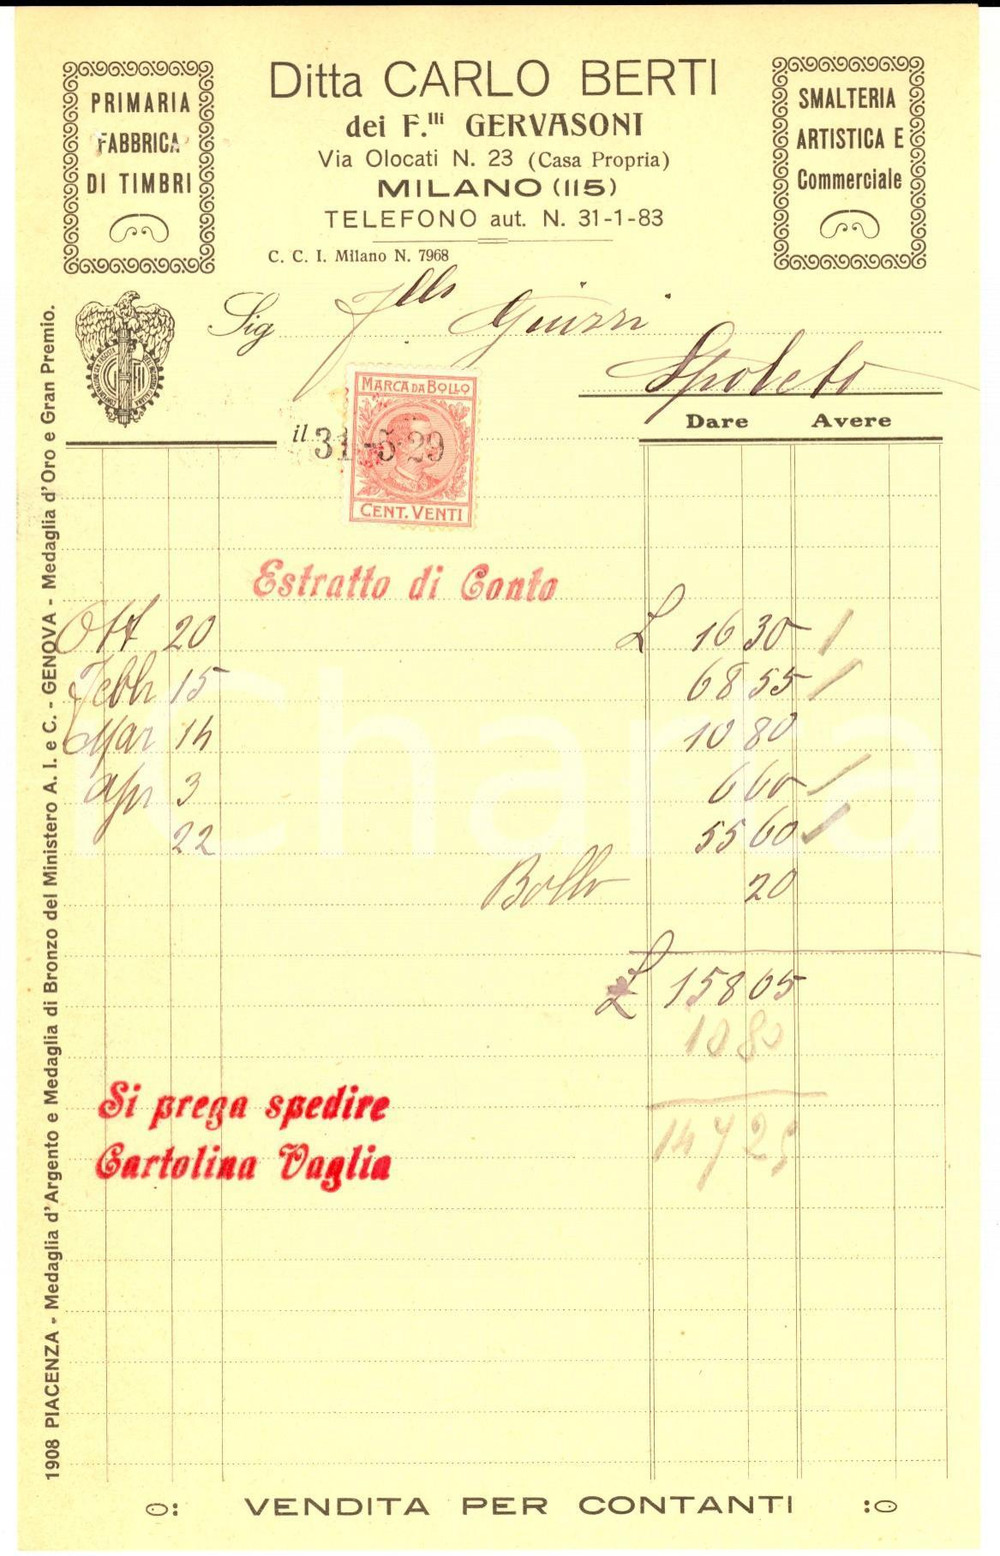 PRIMARIA
FABBRICA
DI TIMBRI
Ditta CARLO BERTI
dei F.lli GERVASONI
Via Olocati N. 23 (Casa Propria)
MILANO (115)
TELEFONO aut. N. 31-1-83
C. C. I. Milano N. 7968
SMALTERIA
ARTISTICA E
Commerciale
Sig F.lli
Spoleto
Dare Avere
MARCA DA BOLLO
il 31-5-29
CENT. VENTI
Estratto di Conto
Ott 20 L 16 30
Febbr 15 68 55
Mar 14 10 80
Apr 3 6 60
22 55 60
Bollo 20
L 158 05
10 80
147 25
Si prega spedire
Cartolina Vaglia
1908 PIACENZA - Medaglia d'Argento e Medaglia di Bronzo del Ministero A. I. e C. - GENOVA - Medaglia d'Oro e Gran Premio.
VENDITA PER CONTANTI
iCharta